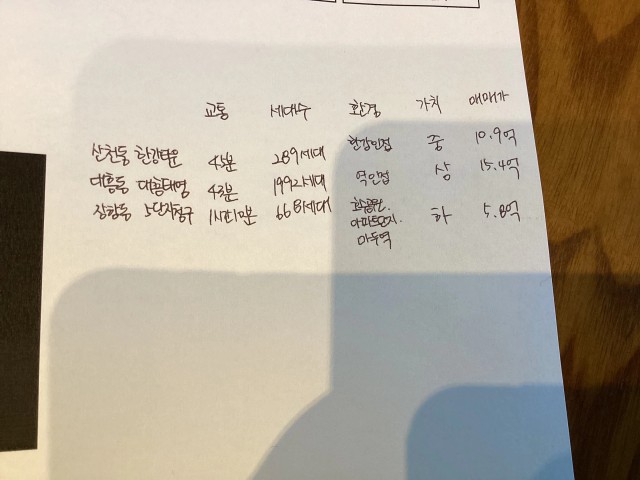 교통 세대수 환경 가치 매매가
산천동 한강타운 45분 289세대 한강인접 중 10.9억
대흥동 대흥태영 43분 1992세대 역인접 상 15.4억
장항동 5단지청구 1시간10분 668세대 호수공원. 하 5.8억
아파트단지.
마두역